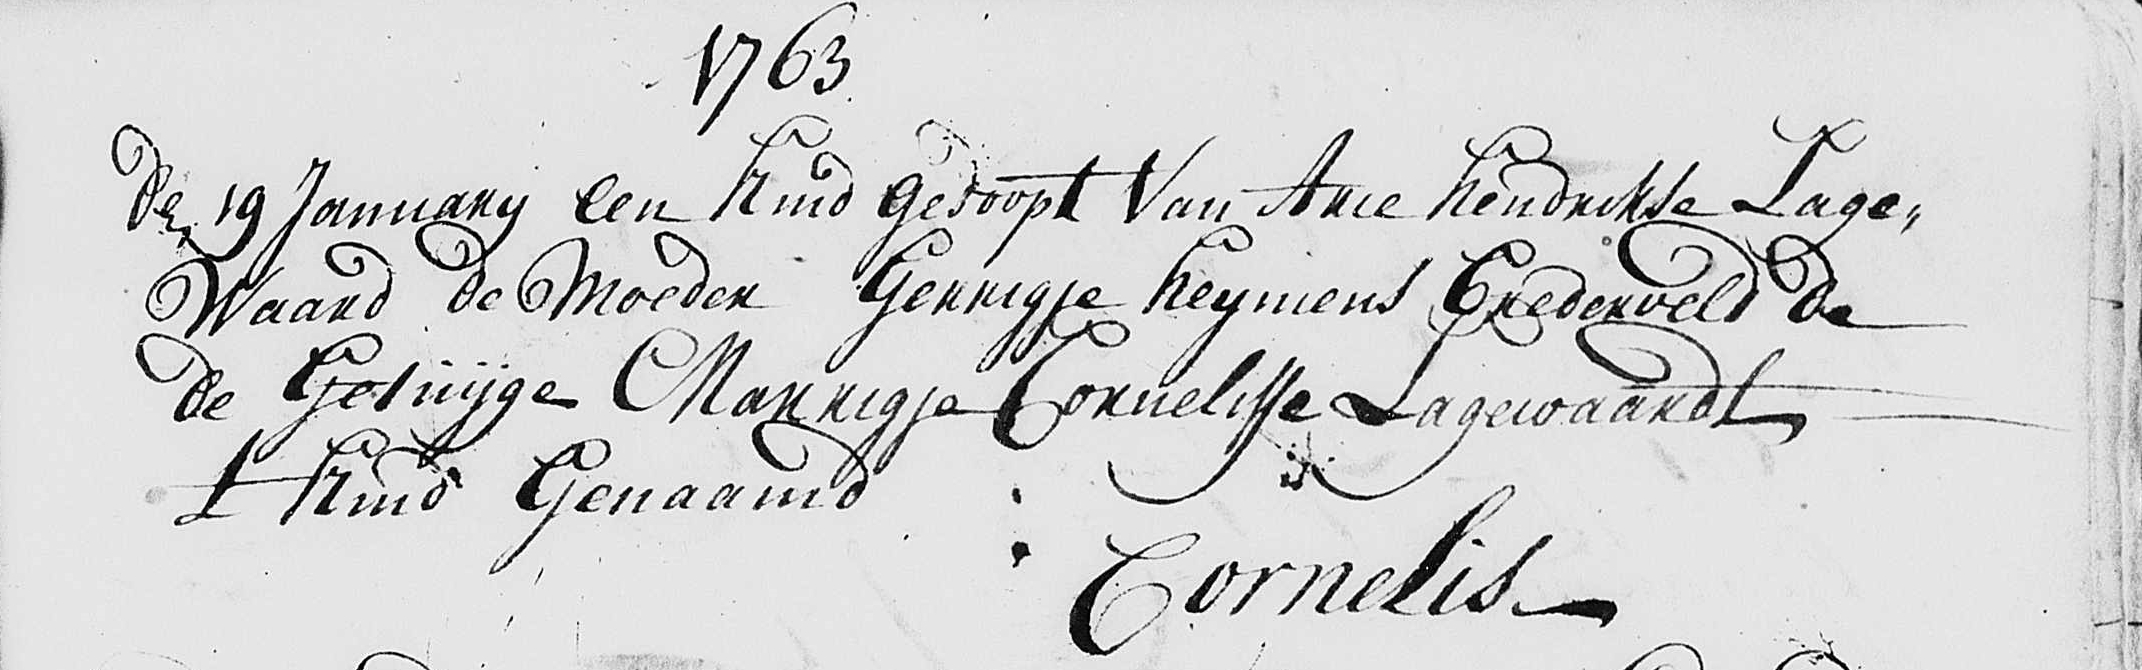 1763
de 19 January een kind gedoopt Van Arie hendrikse Lage„
Waard de Moeder Gerrigje heymens Erederveld de
de Getuijge Marrigje Cornelisse Lagewaardt
t kind Genaamd :
Cornelis